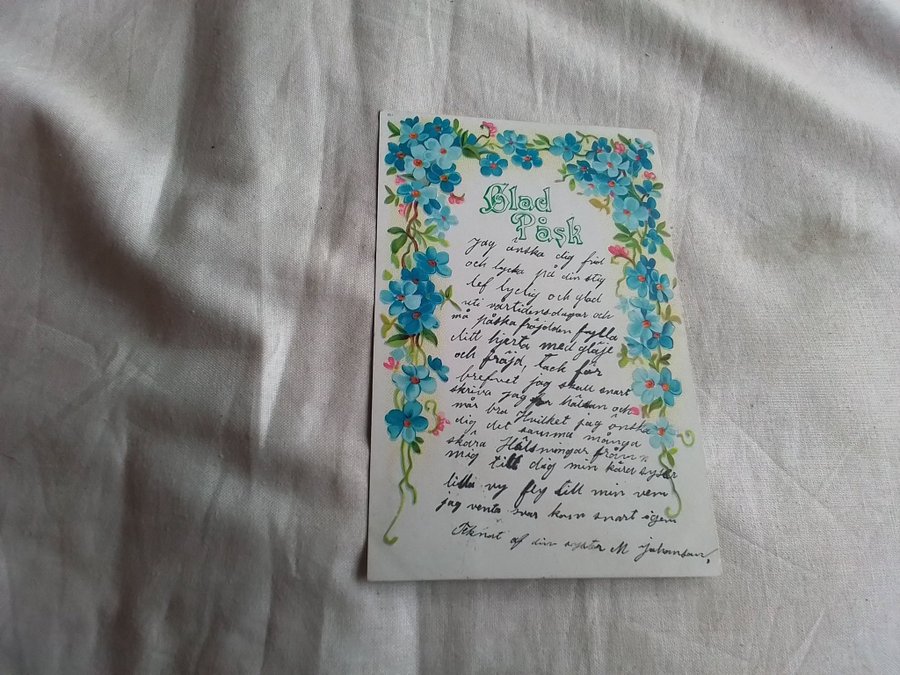 Glad
Påsk
Jag önska dig frid
och lycka på din stig
lef lyclig och glad
uti vårtidensdagar och
må påska fröjdden fuylla
ditt hjerta med gläje
och fröjd, tack för
brefvet jag skall snart
skriva jag har hälsan och
mår bra Hvilket jag önska
dig det samma många
skära Hälsningar från
mig till dig min kära syster
lilla vy fly till min vem
jag venta svar kom snart igen
Teknat af din syster M johansson,